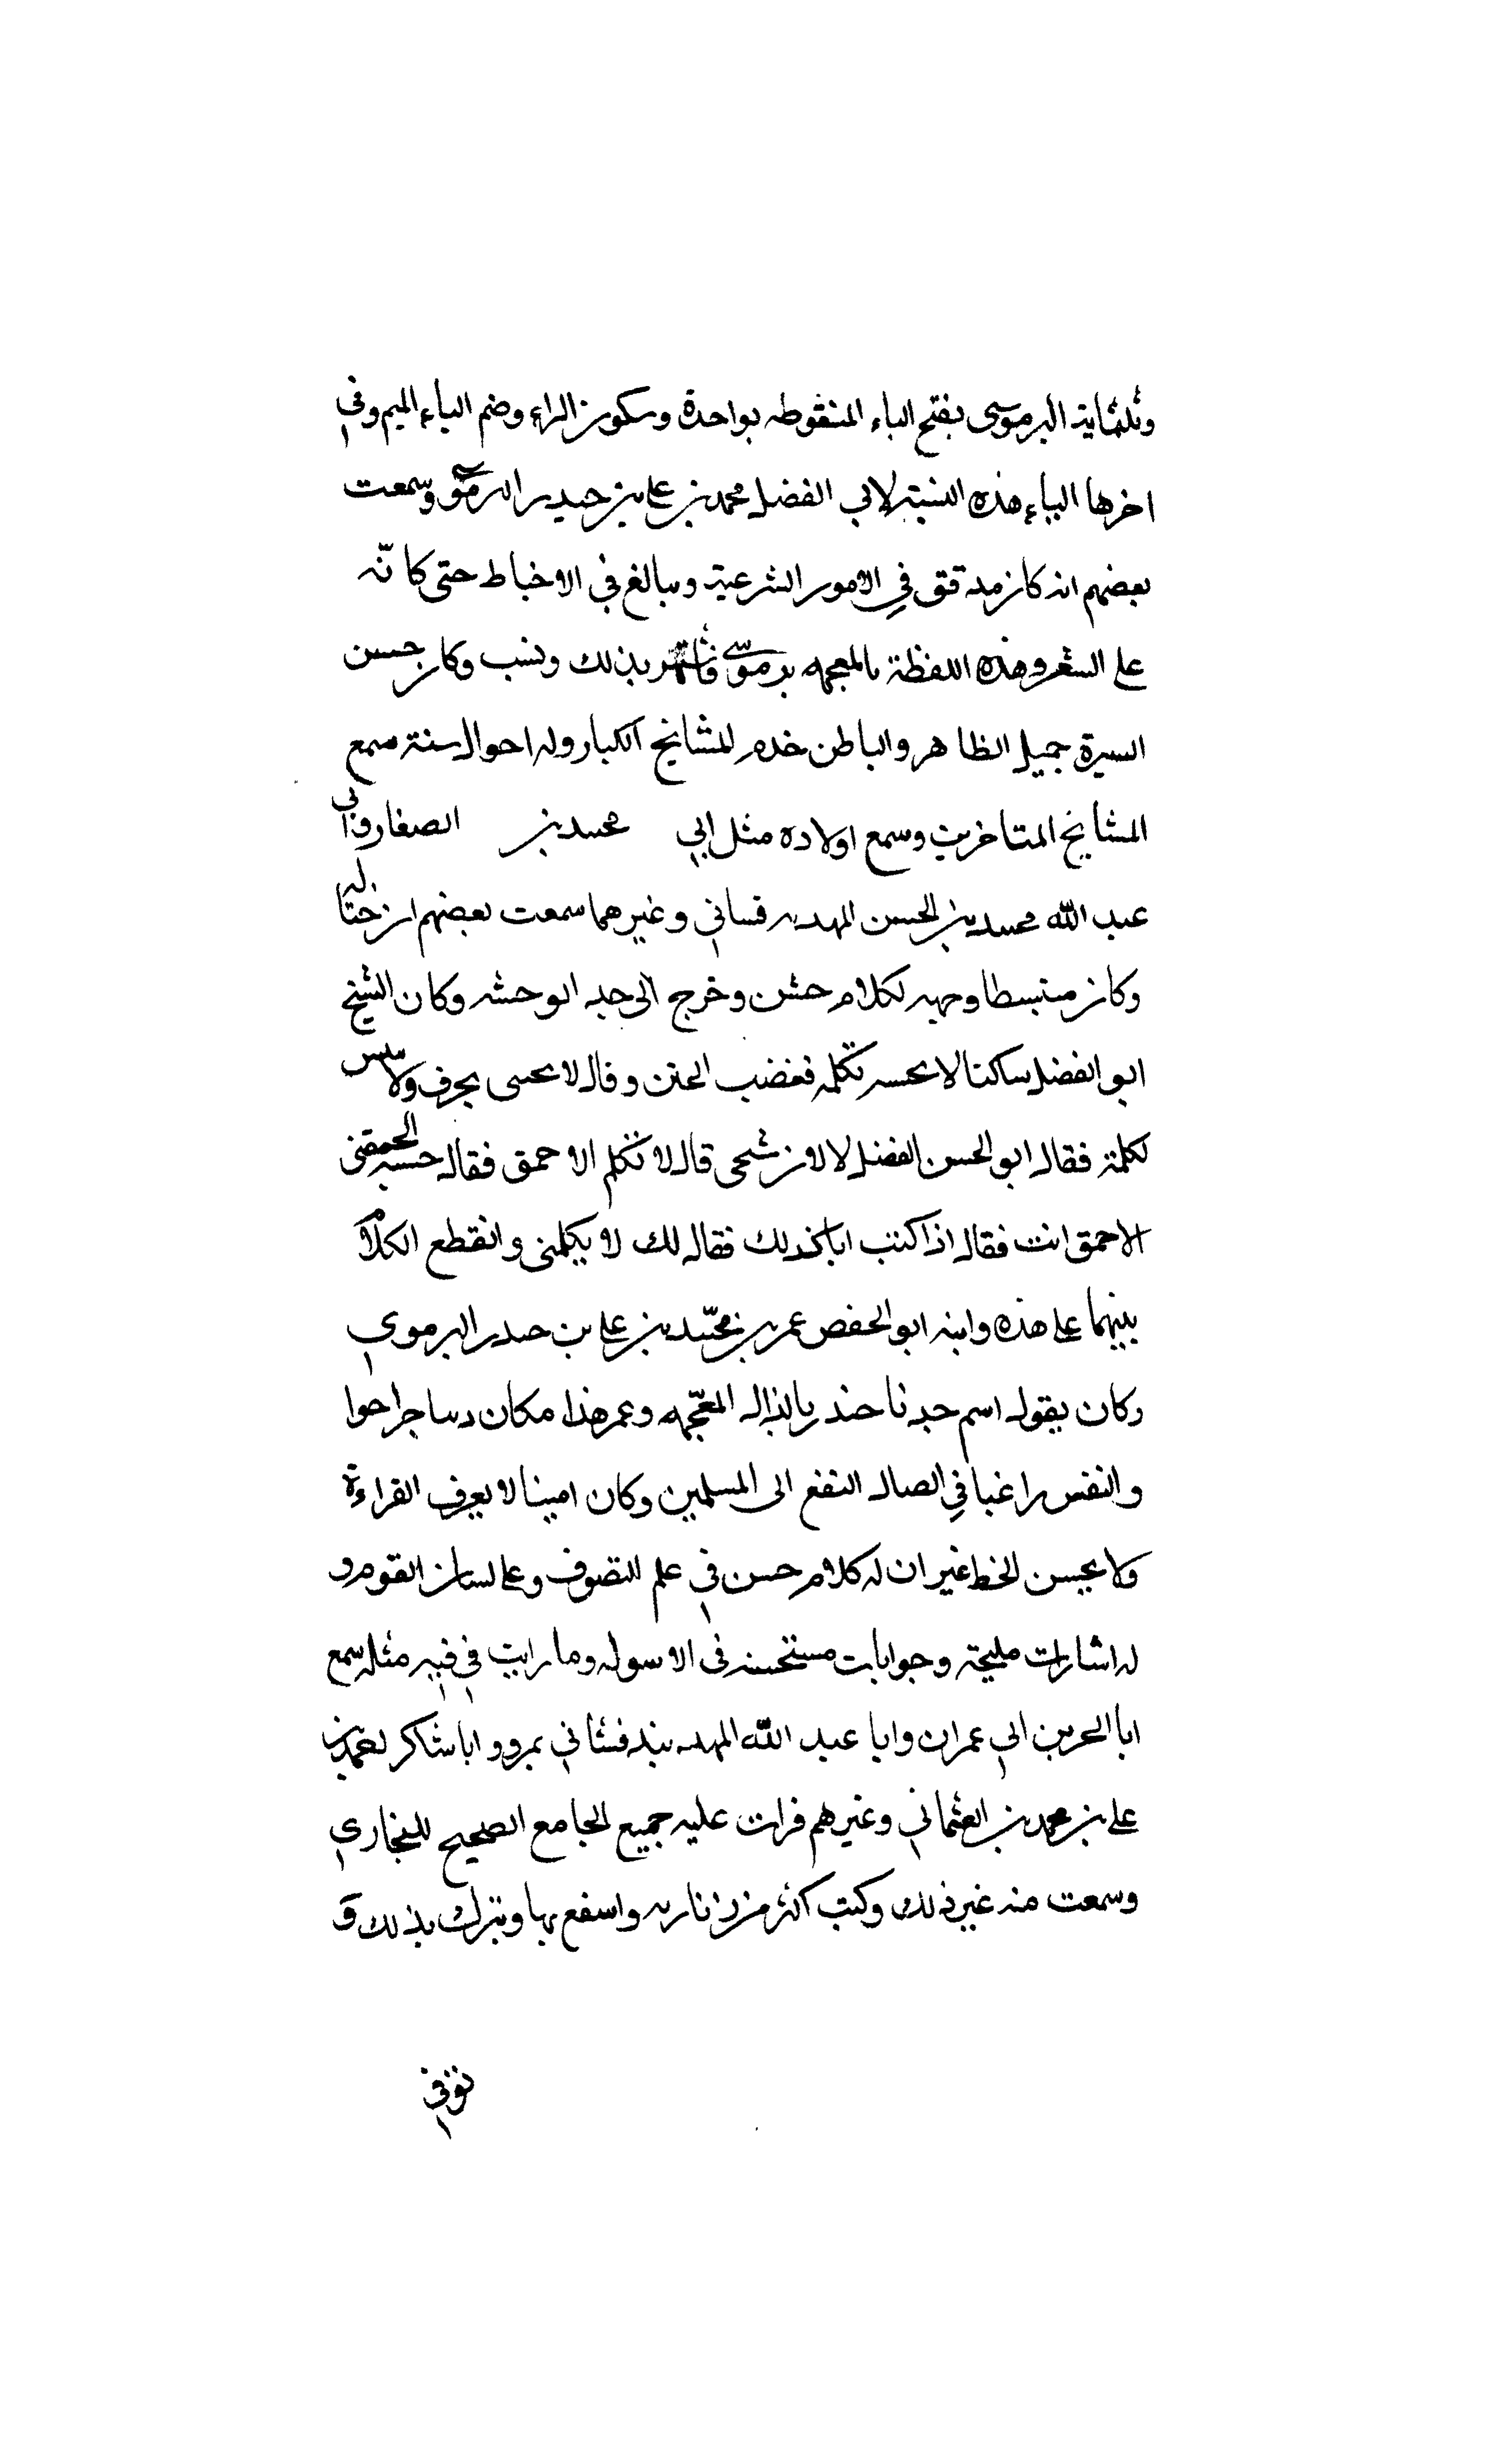 وثلثماية البرموسى بفتح الباء المنقوطه بواحدة وسكون الراء وضم الباء الميم وفي
اخرها الياء هذه النسبة لابي الفضل محمد بن على بن حيدر البرموى وسمعت
بعضهم انه كان مدقق في الامور الشرعية ويبالغ في الاخباط حتى كانه
على الشعر وهذه اللفظة بالمعجمه برموسى فاشتهر بذلك ونسب وكان حسن
السيرة جميل الظاهر والباطن خدم المشايخ الكبار وله احوال سنة سمع
المشايخ المتاخرين وسمع اولاده مثل ابي محمد بن الصفار وابي
عبد الله محمد بن الحسن المهد فساني وغيرهما سمعت بعضهم ان ختا له
وكان متبسطا وجهه لكلام خشن وخرج الى حد الوحشه وكان الشيخ
ابو الفضل ساكتا لا يحسه تكلمه فغضب الختن وقال لا يحسى بحرف ولا
لكلمة فقال ابو الحسن الفضل لا لان قال لا تكلم الاحمق فقال الحمقنى
الاحمق انت فقال اذا كنت ابا كذلك فقال لك لا يكلمنى وانقطع الكلام
بينهما على هذه وابنه ابو الحفص عمر بن محمد بن على بن حيدر البرموي
وكان يقول اسم جدنا حندر بالذال المعجمه وعمر هذا مكان
والنفس راغبا في ايصال النفع الى المسلمين وكان امينا لا يعرف القراءة
ولا يحسن الخط غير ان له كلام حسن في علم التصوف وعلى لسان القوم و
له اشارات مليحة وجوابات مستحسنه في الاسوله وما رايت في فنه مثله سمع
ابا الحرين ابي عمران وابا عبد الله المهد بندفشاني بمرو وابا شاكر
على بن محمد بن العثماني وغيرهم قرات عليه جميع الجامع الصحيح للبخاري
وسمعت منه غير ذلك وكتب اكثر من واسفع بها وتبرك بذلك و
توفي